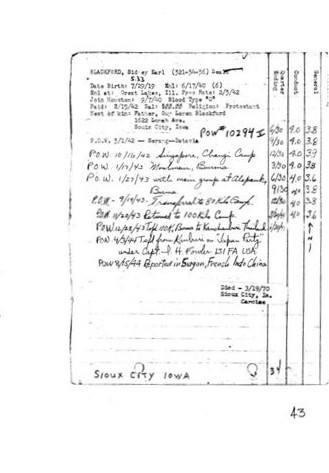 BLACKFORD, Sidney Earl (321-34-36) Sea1c
5.13
Date Birth: 7/29/19 Enl: 6/17/40 (6)
Enl at: Great Lakes, Ill. Prev Rate: 2/3/42
Join Houston: 9/7/40 Blood Type "O"
Paid: 2/15/42 Sal: Religion: Protestant
Next of kin: Father, Guy Loren Blackford
1622 Lorah Ave.
Sioux City, Iowa
POW# 10294 I
P.O.W. 3/1/42 - Serang-Batavia
P.O.W. 10/16/42 Singapore, Changi Camp
P.O.W. 1/17/43 Moulmein, Burma
P.O.W. 1/23/43 with main group at
Burma
P.O.W. - 9/19/43 - Transferred to 80 Kilo Camp
POW 11/20/43 Returned to 100 Kilo Camp
POW 12/23/43 100K, Burma to Thailand
POW 4/3/44 from Kinburi on Japan Party
under Capt. I. H. Fowler 131 FA USA
POW 8/15/44 Reported in Saigon, French Indo China
Died - 3/19/70
Sioux City, Ia.
Cardiac
SIOUX CITY IOWA
Quarter Ending
Conduct
General
6/30 4.0 3.8
9/30 4.0 3.8
12/30 4.0 3.9
3/30 4.0 3.8
6/30 4.0 3.6
9/30 4.0 3.8
4.0 3.8
4.0 3.6
34
43